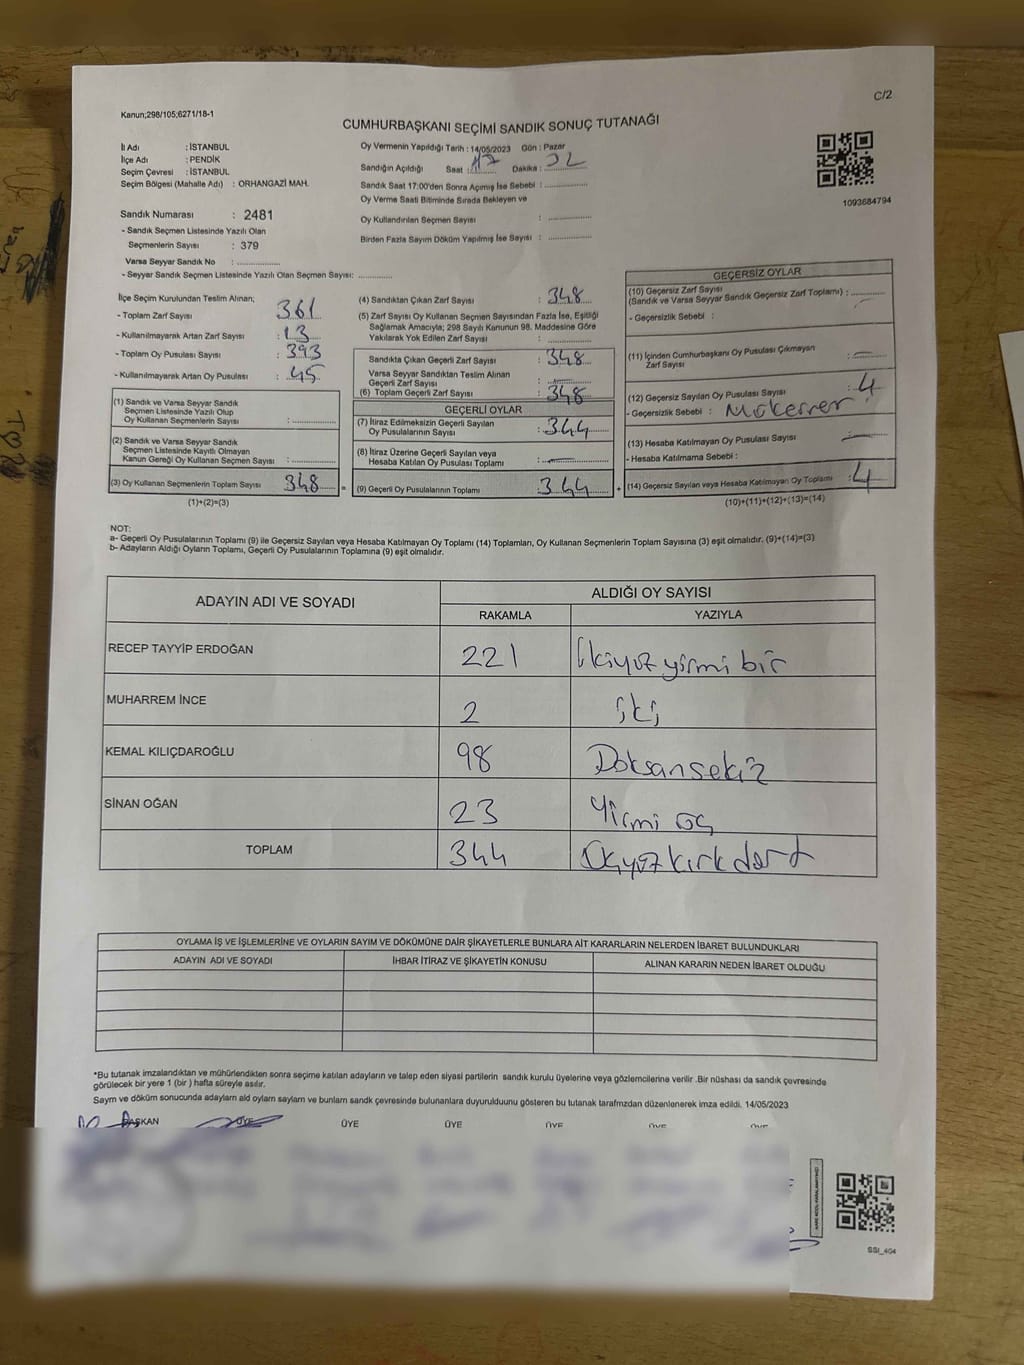 C/2
Kanun;298/105;6271/18-1
CUMHURBAŞKANI SEÇİMİ SANDIK SONUÇ TUTANAĞI
İl Adı : İSTANBUL
İlçe Adı : PENDİK
Seçim Çevresi : İSTANBUL
Seçim Bölgesi (Mahalle Adı) : ORHANGAZİ MAH.
Sandık Numarası : 2481
- Sandık Seçmen Listesinde Yazılı Olan
Seçmenlerin Sayısı : 379
Varsa Seyyar Sandık No : ............
- Seyyar Sandık Seçmen Listesinde Yazılı Olan Seçmen Sayısı: ............
Oy Vermenin Yapıldığı Tarih : 14/05/2023 Gün : Pazar
Sandığın Açıldığı Saat : 17 Dakika : 32
Sandık Saat 17:00'den Sonra Açımış İse Sebebi : ............
Oy Verme Saati Bitiminde Sırada Bekleyen ve
Oy Kullandırılan Seçmen Sayısı : ............
Birden Fazla Sayım Döküm Yapılmış İse Sayısı : ............
1093684794
İlçe Seçim Kurulundan Teslim Alınan;
- Toplam Zarf Sayısı : 361
- Kullanılmayarak Artan Zarf Sayısı : 13
- Toplam Oy Pusulası Sayısı : 393
- Kullanılmayarak Artan Oy Pusulası : 45
(1) Sandık ve Varsa Seyyar Sandık
Seçmen Listesinde Yazılı Olup
Oy Kullanan Seçmen Sayısı : ............
(2) Sandık ve Varsa Seyyar Sandık
Seçmen Listesinde Kayıtlı Olmayan
Kanun Gereği Oy Kullanan Seçmen Sayısı : ............
(3) Oy Kullanan Seçmenlerin Toplam Sayısı : 348 =
(1)+(2)=(3)
(4) Sandıktan Çıkan Zarf Sayısı : 348
(5) Zarf Sayısı Oy Kullanan Seçmen Sayısından Fazla İse, Eşitliği
Sağlamak Amacıyla; 298 Sayılı Kanunun 98. Maddesine Göre
Yakılarak Yok Edilen Zarf Sayısı : ............
Sandıkta Çıkan Geçerli Zarf Sayısı : 348
Varsa Seyyar Sandıktan Teslim Alınan
Geçerli Zarf Sayısı : ............
(6) Toplam Geçerli Zarf Sayısı : 348
GEÇERLİ OYLAR
(7) İtiraz Edilmeksizin Geçerli Sayılan
Oy Pusulalarının Sayısı : 344
(8) İtiraz Üzerine Geçerli Sayılan veya
Hesaba Katılan Oy Pusulası Toplamı : ............
(9) Geçerli Oy Pusulalarının Toplamı : 344 +
GEÇERSİZ OYLAR
(10) Geçersiz Zarf Sayısı
(Sandık ve Varsa Seyyar Sandık Geçersiz Zarf Toplamı) : ............
- Geçersizlik Sebebi :
(11) İçinden Cumhurbaşkanı Oy Pusulası Çıkmayan
Zarf Sayısı : ............
(12) Geçersiz Sayılan Oy Pusulası Sayısı : 4
- Geçersizlik Sebebi : Mükerrer
(13) Hesaba Katılmayan Oy Pusulası Sayısı : ............
- Hesaba Katılmama Sebebi :
(14) Geçersiz Sayılan veya Hesaba Katılmayan Oy Toplamı : 4
(10)+(11)+(12)+(13)=(14)
NOT:
a- Geçerli Oy Pusulalarının Toplamı (9) ile Geçersiz Sayılan veya Hesaba Katılmayan Oy Toplamı (14) Toplamları, Oy Kullanan Seçmenlerin Toplam Sayısına (3) eşit olmalıdır. (9)+(14)=(3)
b- Adayların Aldığı Oyların Toplamı, Geçerli Oy Pusulalarının Toplamına (9) eşit olmalıdır.
ADAYIN ADI VE SOYADI
ALDIĞI OY SAYISI
RAKAMLA YAZIYLA
RECEP TAYYİP ERDOĞAN 221 İkiyüz yirmi bir
MUHARREM İNCE 2 iki
KEMAL KILIÇDAROĞLU 98 Doksansekiz
SİNAN OĞAN 23 Yirmi üç
TOPLAM 344 Üçyüzkırkdört
OYLAMA İŞ VE İŞLEMLERİNE VE OYLARIN SAYIM VE DÖKÜMÜNE DAİR ŞİKAYETLERLE BUNLARA AİT KARARLARIN NELERDEN İBARET BULUNDUKLARI
ADAYIN ADI VE SOYADI İHBAR İTİRAZ VE ŞİKAYETİN KONUSU ALINAN KARARIN NEDEN İBARET OLDUĞU
*Bu tutanak imzalandıktan ve mühürlendikten sonra seçime katılan adayların ve talep eden siyasi partilerin sandık kurulu üyelerine veya gözlemcilerine verilir .Bir nüshası da sandık çevresinde
görülecek bir yere 1 (bir ) hafta süreyle asılır.
Sayım ve döküm sonucunda adayların aldı oyların sayların ve bunların sandk çevresinde bulunanlara duyurulduunu gösteren bu tutanak tarafmzdan düzenlenerek imza edildi. 14/05/2023
BAŞKAN ÜYE ÜYE ÜYE ÜYE ÜYE ÜYE
SSI_404